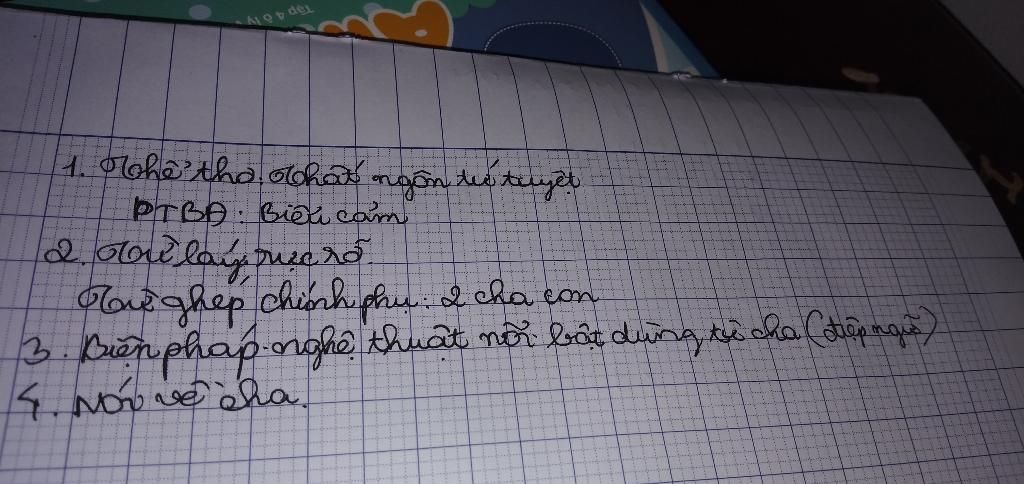 Tập 4 Ô ly
1. Thể thơ: Thất ngôn tứ tuyệt
PTBĐ: Biểu cảm
2. Từ láy, rực rỡ
Từ ghép chính phụ: 2 cha con
3. Biện pháp nghệ thuật nổi bật dùng từ cha (điệp ngữ)
4. Nói về cha.